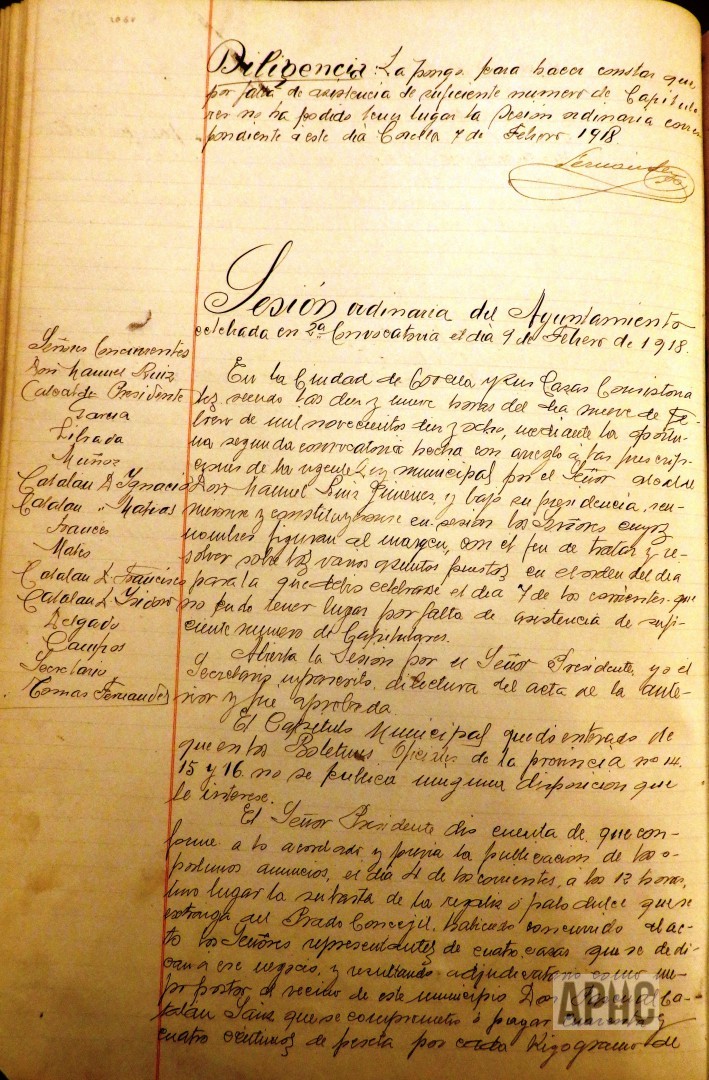 Diligencia: La pongo para hacer constar que
por falta de asistencia de suficiente numero de Capitula
res no ha podido tener lugar la Sesion ordinaria corres
pondiente a este dia Corella 7 de Febrero 1918.
Fernandez
Sesión ordinaria del Ayuntamiento
celebrada en 2ª Convocatoria el dia 9 de Febrero de 1918.
Señores Concurrentes
Don Manuel Ruiz
Alcalde Presidente
Garcia
Librada
Muñoz
Catalan D. Ignacio
Catalan " Mateos
Frances
Mateo
Catalan D. Francisco
Catalan D. Isidoro
Delgado
Campos
Secretario
Tomas Fernandez
En la Ciudad de Corella y sus Casas Consistoria
les, siendo las diez y nueve horas del dia nueve de Fe-
brero de mil novecientos diez y ocho, mediante la oportu-
na segunda convocatoria hecha con arreglo a las prescrip-
ciones de la vigente Ley municipal por el Señor Alcalde
Don Manuel Ruiz Jimenez y bajo su presidencia, reu-
nieronse y constituyeronse en sesion los Señores cuyos
nombres figuran al margen, con el fin de tratar y re-
solver sobre los varios asuntos puestos en el orden del dia
para la que debio celebrarse el dia 7 de los corrientes que
no pudo tener lugar por falta de asistencia de sufi-
ciente numero de Capitulares.
Abierta la Sesion por el Señor Presidente, yo el
Secretario infrascrito, di lectura del acta de la ante-
rior y fue aprobada.
El Capitulo Municipal quedo enterado de
que en los Boletines Oficiales de la provincia nº 14.
15 y 16 no se publica ninguna disposicion que
le interese.
El Señor Presidente dio cuenta de que con-
forme a lo acordado y previa la publicacion de los o-
portunos anuncios, el dia 4 de los corrientes, a las 12 horas,
tuvo lugar la subasta de la regaliz ó palo dulce que se
extraiga del Prado Concejil, habiendo concurrido al ac-
to los Señores representantes de cuatro casas que se dedi-
can a ese negocio, y resultando adjudicatario como me-
jor postor el vecino de este municipio Don Ca-
talán Sanz que se comprometio a pagar y
cuatro centimos de peseta por cada Kigogramo de
APHC